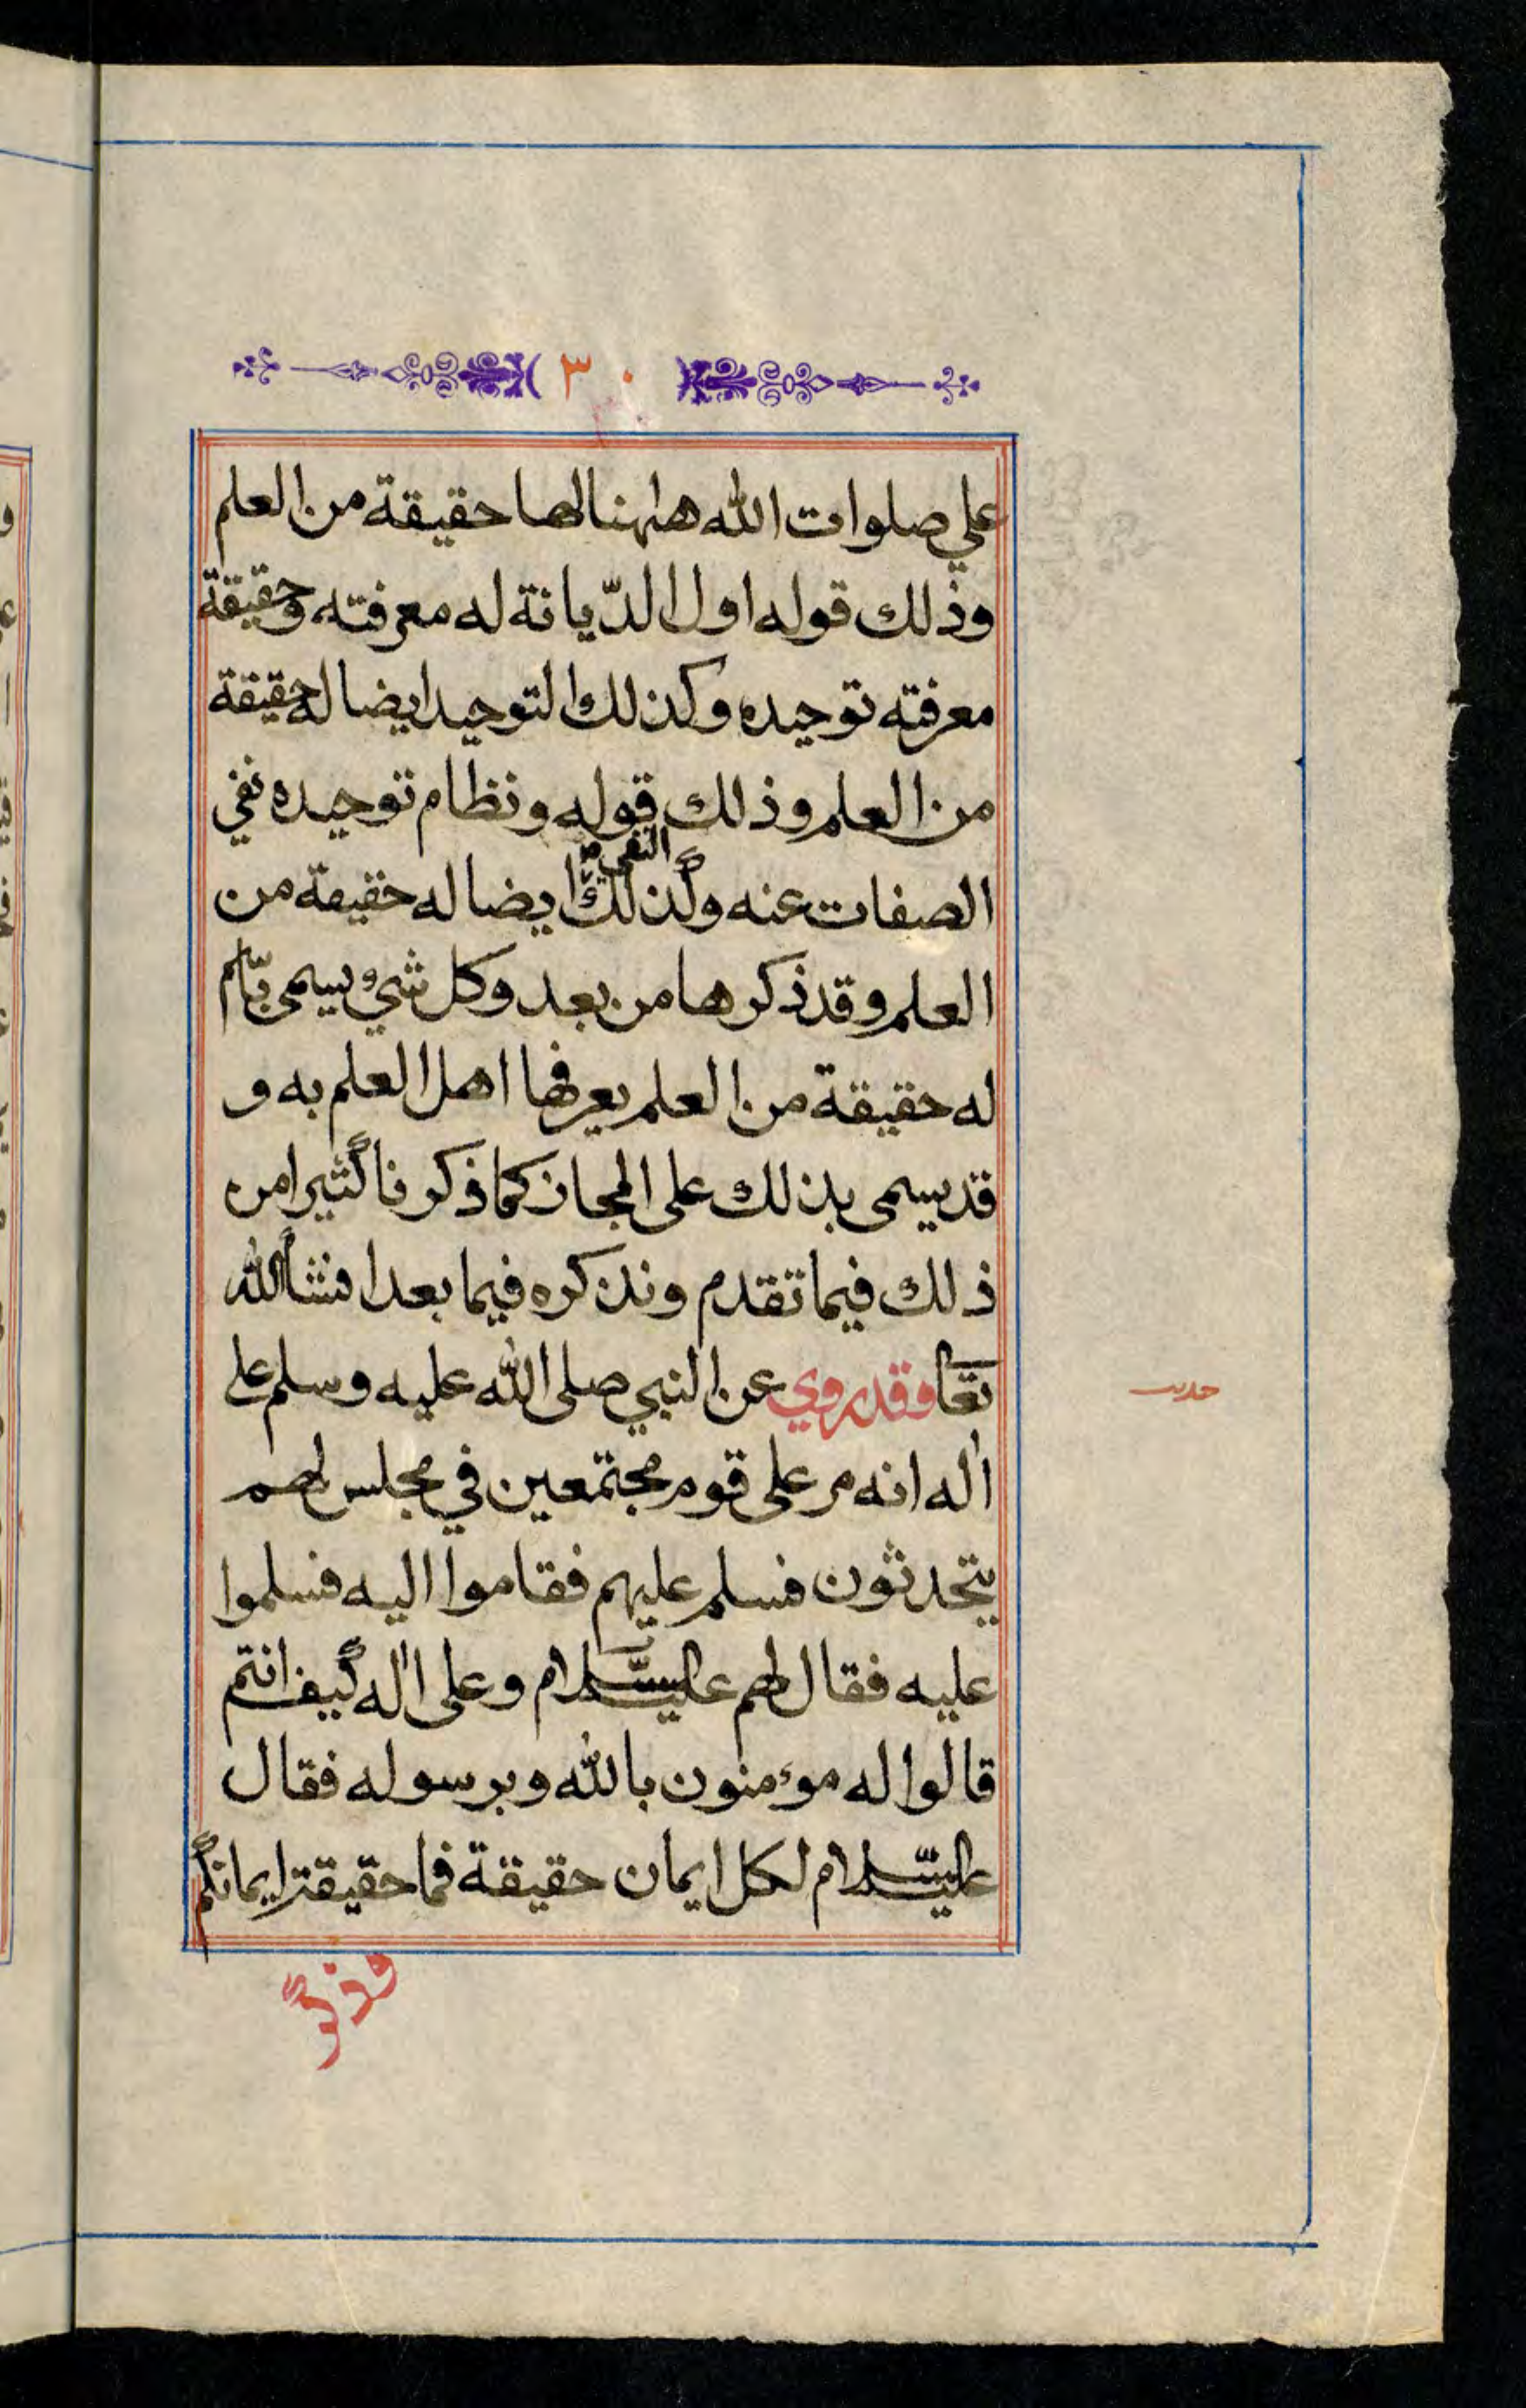 ٣٠
علي صلوات الله هاهنا لها حقيقة من العلم
وذلك قوله اول الدّيانة له معرفته وحقيقة
معرفته توحيده وكذلك التوحيد ايضا له حقيقة
من العلم وذلك قوله ونظام توحيده نفي
النفي
الصفات عنه وكذلك ايضا له حقيقة من
العلم وقد ذكرها من بعد وكل شيء يسمى
له حقيقة من العلم يعرفها اهل العلم به و
قد يسمى بذلك على المجاز كما ذكرنا كثيرا من
ذلك فيما تقدم ونذكره فيما بعد انشاالله
تعا وقد روي عن النبي صلى الله عليه وسلم على
حديث
اله انه مر على قوم مجتمعين في مجلس لهم
يتحدثون فسلم عليهم فقاموا اليه فسلموا
عليه فقال لهم عليه السّلام وعلى اله كيف انتم
قالوا له موءمنون بالله وبرسوله فقال
عليه السّلام لكل ايمان حقيقة فما حقيقة ايمانكم